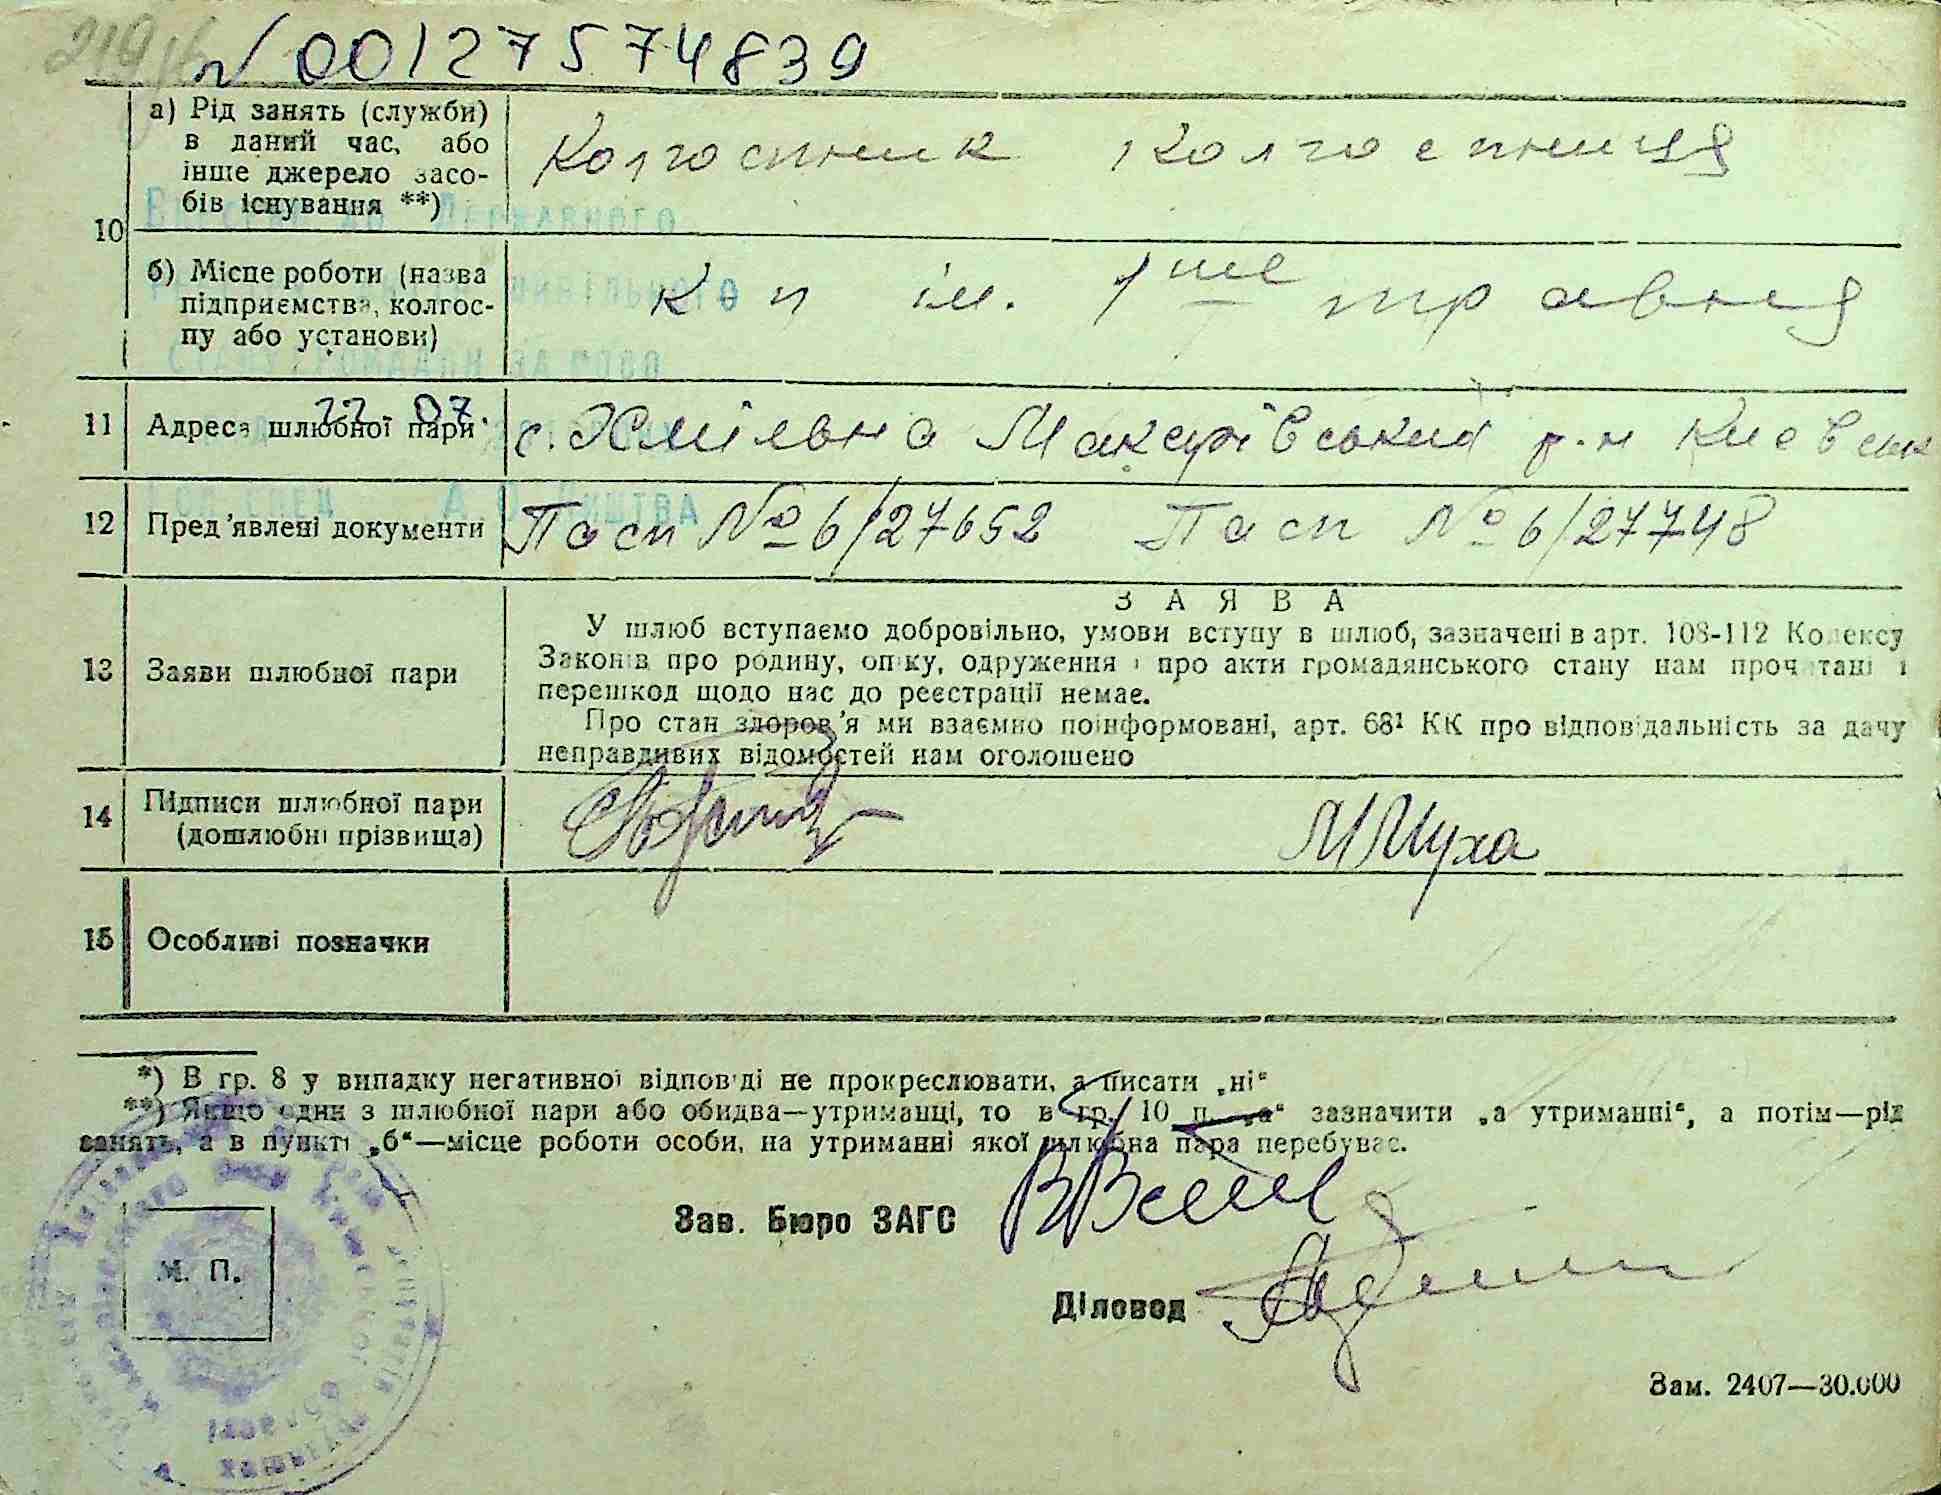 219
N 00127574839
10
а) Рід занять (служби)
в даний час, або
інше джерело засо-
бів існування **)
Колгоспник Колгоспниця
б) Місце роботи (назва
підприємства, колгос-
пу або установи)
к п ім. 1ше травня
11 Адреса шлюбної пари
22 07.
с. Хмільна Макарівський р-н Києвськ
12 Пред'явлені документи Пасп № 6/27652 Пасп № 6/27748
13 Заяви шлюбної пари
ЗАЯВА
У шлюб вступаємо добровільно, умови вступу в шлюб, зазначені в арт. 108-112 Кодексу
Законів про родину, опіку, одруження і про акти громадянського стану нам прочитані і
перешкод щодо нас до реєстрації немає.
Про стан здоров'я ми взаємно поінформовані, арт. 68¹ КК про відповідальність за дачу
неправдивих відомостей нам оголошено
14 Підписи шлюбної пари
(дошлюбні прізвища)
ММуха
15 Особливі позначки
*) В гр. 8 у випадку негативної відповіді не прокреслювати, а писати „ні“
**) Якщо один з шлюбної пари або обидва—утриманці, то в гр. 10 п. „а“ зазначити „а утриманні“, а потім—рід
занять, а в пункті „б“—місце роботи особи, на утриманні якої шлюбна пара перебуває.
Зав. Бюро ЗАГС
М. П.
Діловод
Зам. 2407—30.000